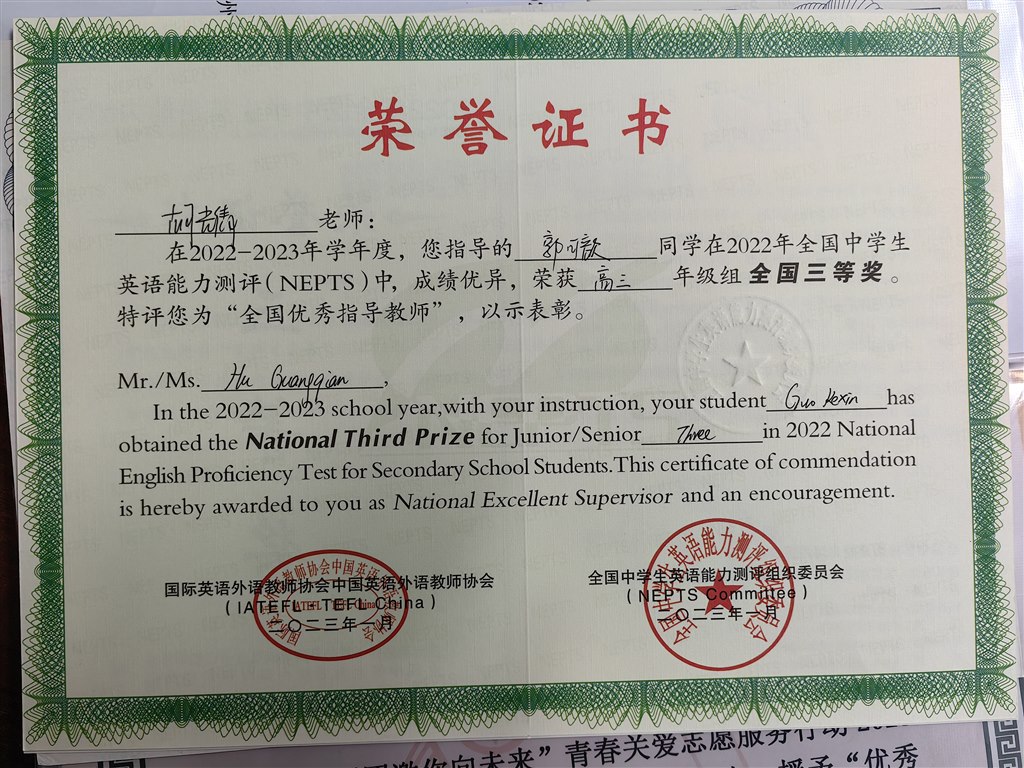 荣誉证书
老师：
在2022-2023年学年度，您指导的 郭可歆 同学在2022年全国中学生
英语能力测评（NEPTS）中，成绩优异，荣获 高三 年级组 全国三等奖。
特评您为“全国优秀指导教师”，以示表彰。
Mr./Ms. Hu Guangqian,
In the 2022-2023 school year,with your instruction, your student Guo Kexin has
obtained the National Third Prize for Junior/Senior Three in 2022 National
English Proficiency Test for Secondary School Students.This certificate of commendation
is hereby awarded to you as National Excellent Supervisor and an encouragement.
国际英语外语教师协会中国英语外语教师协会
（IATEFL - TEFL China）
二〇二三年一月
全国中学生英语能力测评组织委员会
（NEPTS Committee）
二〇二三年一月
向未来”青春关爱志愿服务行动
授予“优秀